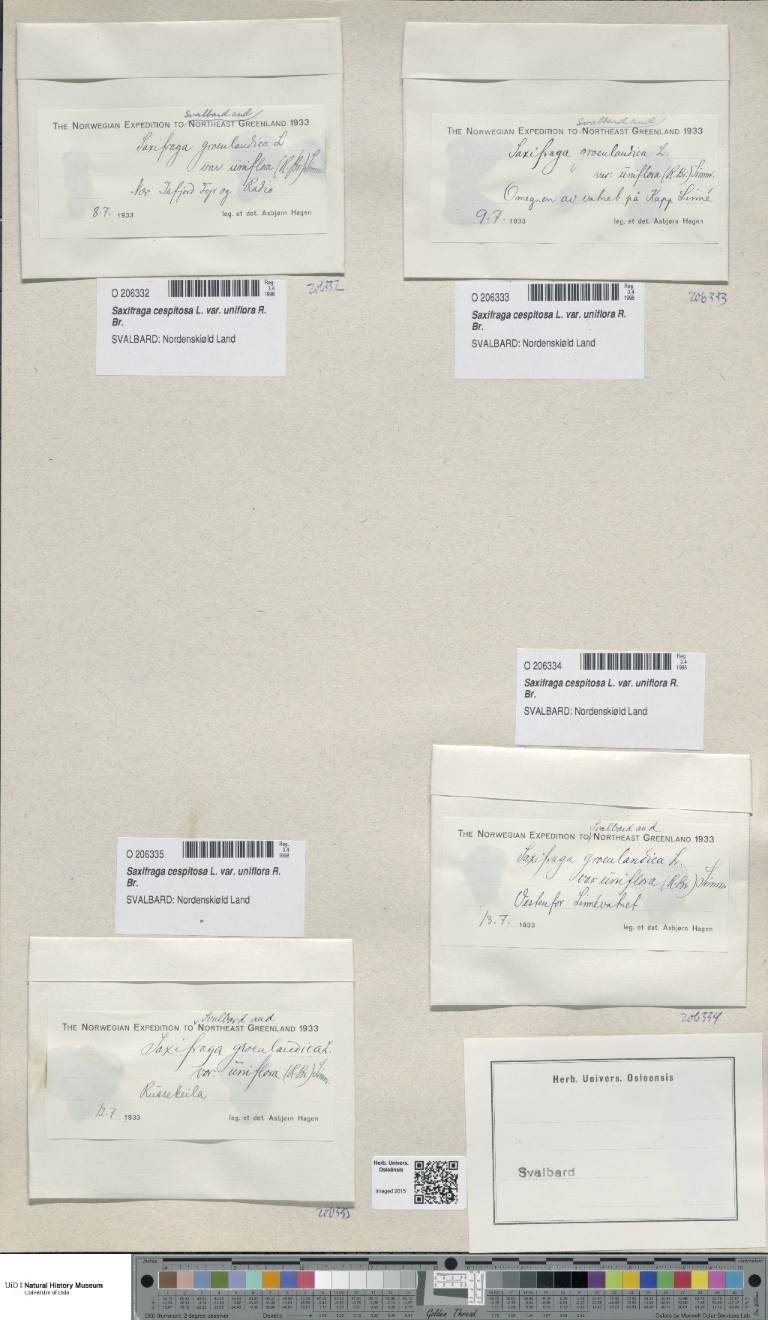 Svalbard and
THE NORWEGIAN EXPEDITION TO NORTHEAST GREENLAND 1933
Saxifraga groenlandica L
var. uniflora (R.Br.) Simm.
Isfjord Fyr og Radio
8.7. 1933 leg. et det. Asbjørn Hagen
O 206332
Reg. 3.4 1998
206332
Saxifraga cespitosa L. var. uniflora R.
Br.
SVALBARD: Nordenskiøld Land
Svalbard and
THE NORWEGIAN EXPEDITION TO NORTHEAST GREENLAND 1933
Saxifraga groenlandica L.
var. uniflora (R.Br.) Simm.
Omegnen av vatnet på Kapp Linné
9.7. 1933 leg. et det. Asbjørn Hagen
O 206333
Reg. 3.4 1998
206333
Saxifraga cespitosa L. var. uniflora R.
Br.
SVALBARD: Nordenskiøld Land
O 206334
Saxifraga cespitosa L. var. uniflora R.
Br.
SVALBARD: Nordenskiøld Land
Svalbard and
THE NORWEGIAN EXPEDITION TO NORTHEAST GREENLAND 1933
Saxifraga groenlandica L.
var. uniflora (R.Br.) Simm.
Vestenfor Linnévatnet
13.7. 1933 leg. et det. Asbjørn Hagen
206334
O 206335
Reg. 3.4 1998
Saxifraga cespitosa L. var. uniflora R.
Br.
SVALBARD: Nordenskiøld Land
Svalbard and
THE NORWEGIAN EXPEDITION TO NORTHEAST GREENLAND 1933
Saxifraga groenlandica L.
var. uniflora (R.Br.) Simm.
Russekeila
1933 leg. et det. Asbjørn Hagen
206335
Herb. Univers.
Osloënsis
Imaged 2015
Herb. Univers. Osloensis
Svalbard
UiO Natural History Museum
University of Oslo
D50 Illuminant, 2 degree observer
Density
Golden Thread
Colors by Munsell Color Services Lab